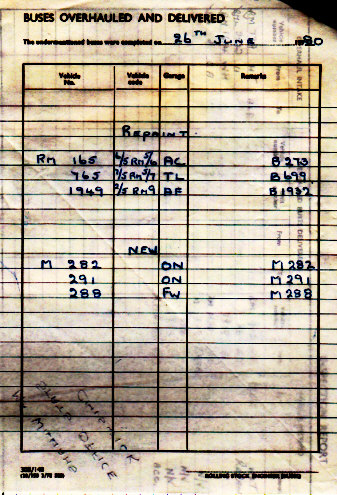 BUSES OVERHAULED AND DELIVERED
The undermentioned buses were completed on 26TH JUNE 1980
Vehicle No. Vehicle code Garage Remarks
REPAINT
RM 165 2/5RM5/6 AC B273
765 2/5RM5/7 TL B699
1949 2/5RM9 AF B1932
NEW
M 282 ON M282
291 ON M291
288 FW M288
CHISWICK
OFFICE
ROLLING STOCK ENGINEER (BUSES)